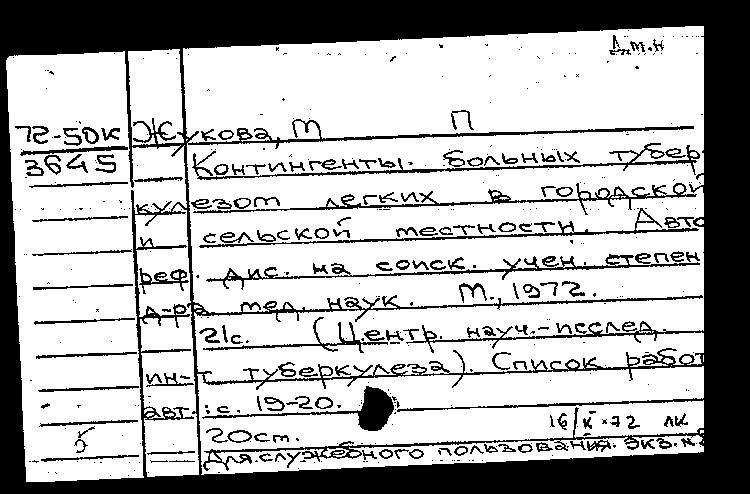 Д.м.н
72-50К Жукова, М П
3645 Контингенты больных тубер-
кулезом легких в городской
и сельской местности. Авто
реф. дис. на соиск. учен. степен
д-ра мед. наук. М., 1972.
21с. (Центр. науч.-исслед.
ин-т туберкулеза). Список работ
авт.: с. 19-20.
16/X-72 ЛК
б 20ст.
Для служебного пользования. Экз. №